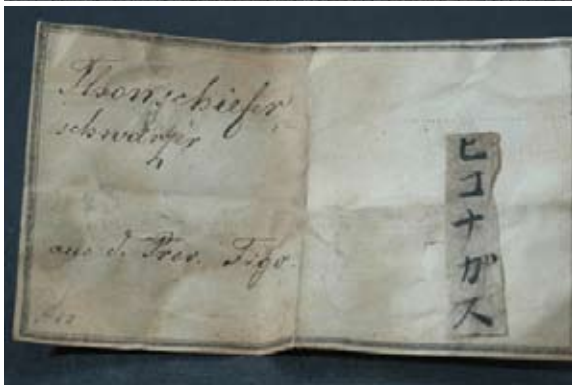 Thonschiefer,
schwarzer
aus d. Prov. Figo.
ヒコナガス